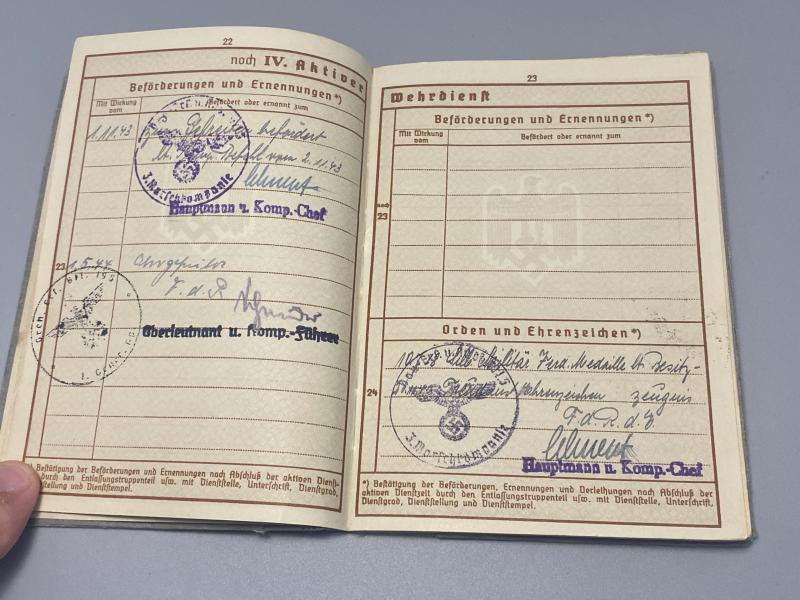 22
noch IV. Aktiver
Beförderungen und Ernennungen*)
Mit Wirkung vom
Befördert oder ernannt zum
1.11.43
befördert
Befehl vom 2.11.43
3. Marschkompanie
Hauptmann u. Komp.-Chef
23
1.5.44
F. d. R.
Oberleutnant u. Komp.-Führer
*) Bestätigung der Beförderungen und Ernennungen nach Abschluß der aktiven Dienst-
durch den Entlassungstruppenteil usw. mit Dienststelle, Unterschrift, Dienstgrad,
Dienststellung und Dienststempel.
23
Wehrdienst
Beförderungen und Ernennungen*)
Mit Wirkung vom
Befördert oder ernannt zum
noch
23
Orden und Ehrenzeichen*)
Militär Medaille Besitz-
24
zeugnis
F. d. R. d.
3. Marschkompanie
Hauptmann u. Komp.-Chef
*) Bestätigung der Beförderungen, Ernennungen und Verleihungen nach Abschluß der
aktiven Dienstzeit durch den Entlassungstruppenteil usw. mit Dienststelle, Unterschrift,
Dienstgrad, Dienststellung und Dienststempel.